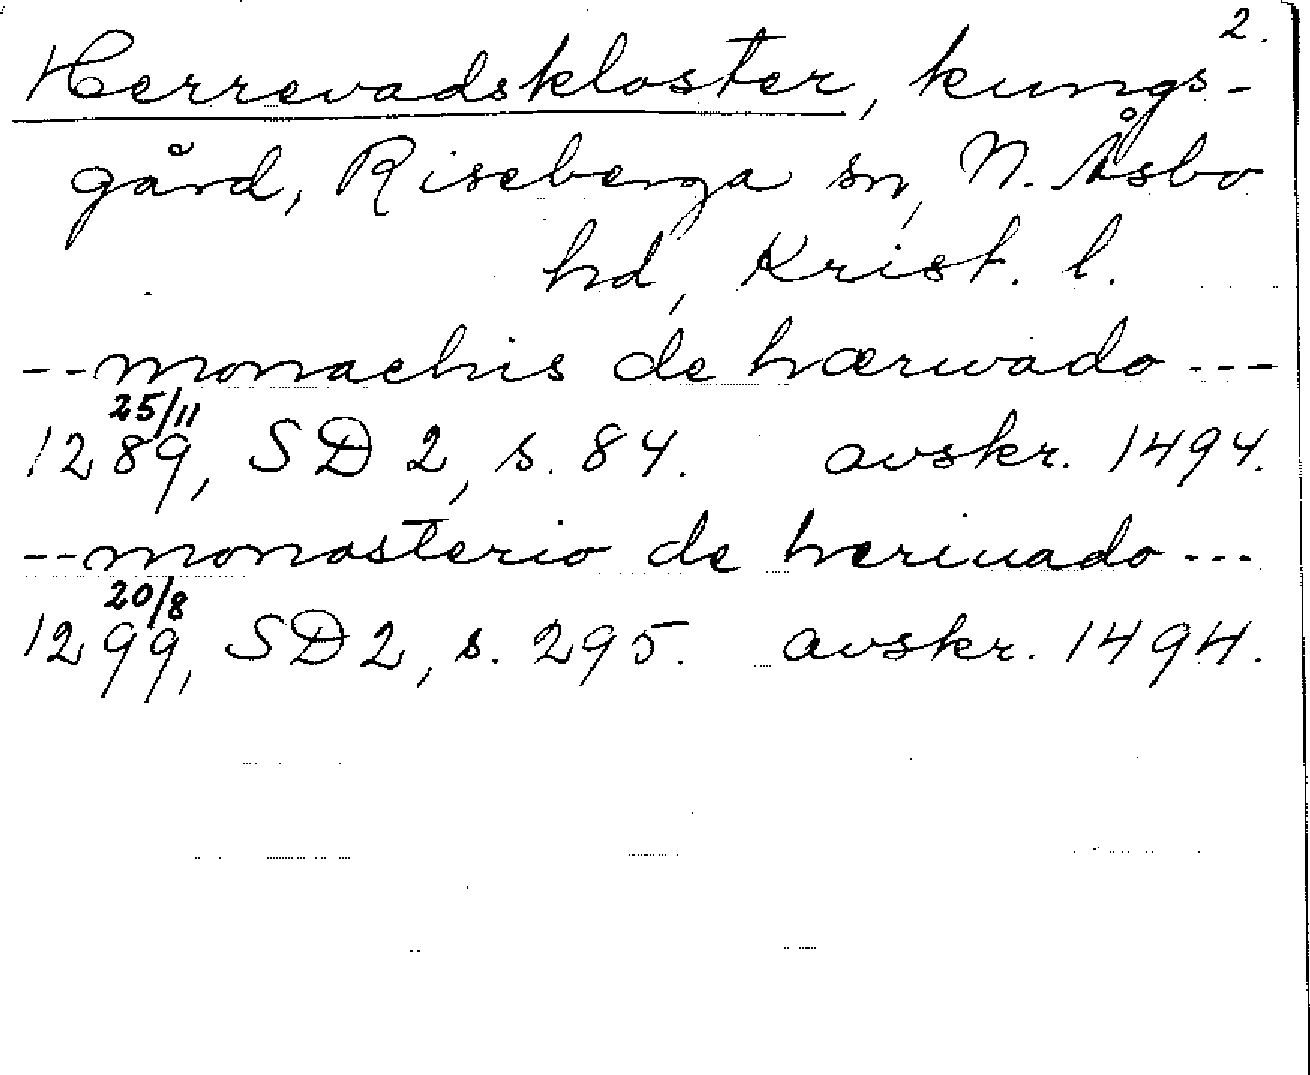 2.
Herrevadskloster, kungs-
gård, Riseberga sn, N. Åsbo
hd, Krist. l.
--monachis de hærwado---
25/11
1289, SD 2, s. 84. avskr. 1494.
--monasterio de heriuado---
20/8
1299, SD 2, s. 295. avskr. 1494.